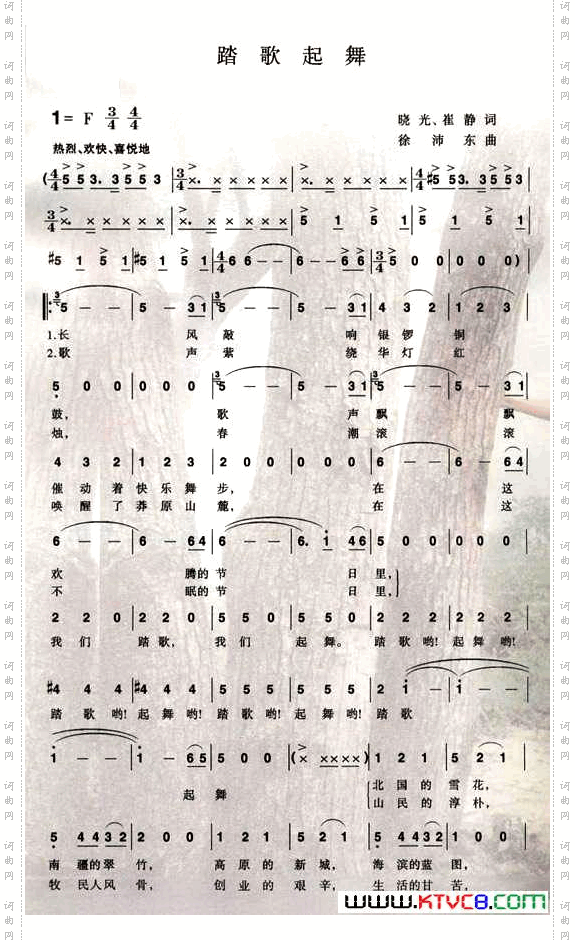 踏歌起舞
1= F 3/4 4/4
晓光、崔静 词
热烈、欢快、喜悦地
徐沛东 曲
(4/4 5 5 53. 3 5 5 3 | 3/4 ×. × × × × | ×. × × × × | 4/4 #5 5 53. 3 5 5 3 |
3/4 ×. × × × × | ×. × × × × | 5 1 5 1 | 5 1 5 1 |
#5 1 5 1 | #5 1 5 1 | 4/4 6 6 - - | 6 - - 6 6 | 3/4 5 0 0 | 0 0 0 )
5 - - | 5 - 3 1 | 5 - - | 5 - 3 1 | 4 3 2 | 1 2 3 |
1.长 风 敲 响 银 锣 铜
2.歌 声 萦 绕 华 灯 红
5 0 0 | 0 0 0 | 5 - - | 5 - 3 1 | 5 - - | 5 - 3 1 |
鼓, 歌 声 飘 飘
烛, 春 潮 滚 滚
4 3 2 | 1 2 3 | 2 0 0 | 0 0 0 | 6 - - | 6 - 6 4 |
催 动 着 快 乐 舞 步, 在 这
唤 醒 了 莽 原 山 麓, 在 这
6 - - | 6 - 6 4 | 6 - - | 6. 1 4 6 | 5 0 0 | 0 0 0 |
欢 腾的 节 日 里,
不 眠的 节 日 里,
2 2 0 | 2 2 0 | 5 5 0 | 5 5 0 | 2 2 2 | 2 2 2 |
我 们 踏 歌, 我 们 起 舞。 踏 歌 哟! 起 舞 哟!
#4 4 4 | #4 4 4 | 5 5 5 | 5 5 5 | 2 1 - | 1 - - |
踏 歌 哟! 起 舞 哟! 踏 歌 哟! 起 舞 哟! 踏 歌
1 - - | 1 - 6 5 | 5 0 0 | (× ××××) | 1 2 1 | 5 2 1 |
起 舞 北 国 的 雪 花,
山 民 的 淳 朴,
5 4 4 3 2 | 2 0 0 | 1 2 1 | 5 2 1 | 5 4 4 3 2 | 2 0 0 |
南 疆的翠 竹, 高 原 的 新 城, 海 滨的蓝 图,
牧 民人风 骨, 创 业 的 艰 辛, 生 活的甘 苦,
www.KTVC8.com
词曲网